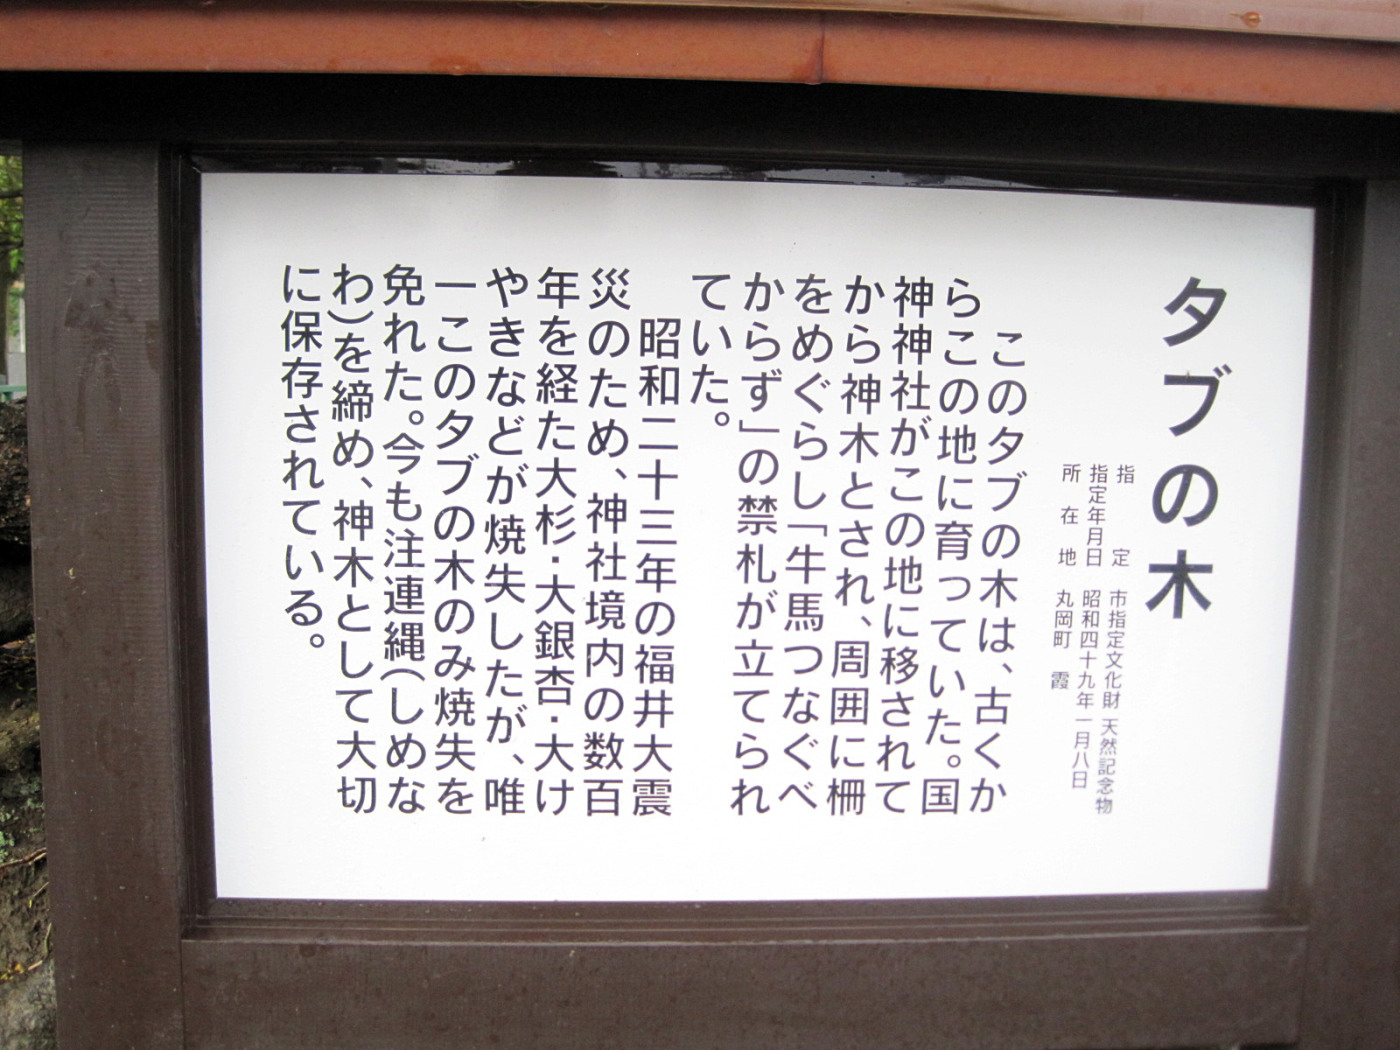 タブの木
指定 市指定文化財 天然記念物
指定年月日 昭和四十九年一月八日
所在地 丸岡町 霞
このタブの木は、古くか
らこの地に育っていた。国
神神社がこの地に移されて
から神木とされ、周囲に柵
をめぐらし「牛馬つなぐべ
からず」の禁札が立てられ
ていた。
昭和二十三年の福井大震
災のため、神社境内の数百
年を経た大杉・大銀杏・大け
やきなどが焼失したが、唯
一このタブの木のみ焼失を
免れた。今も注連縄(しめな
わ)を締め、神木として大切
に保存されている。